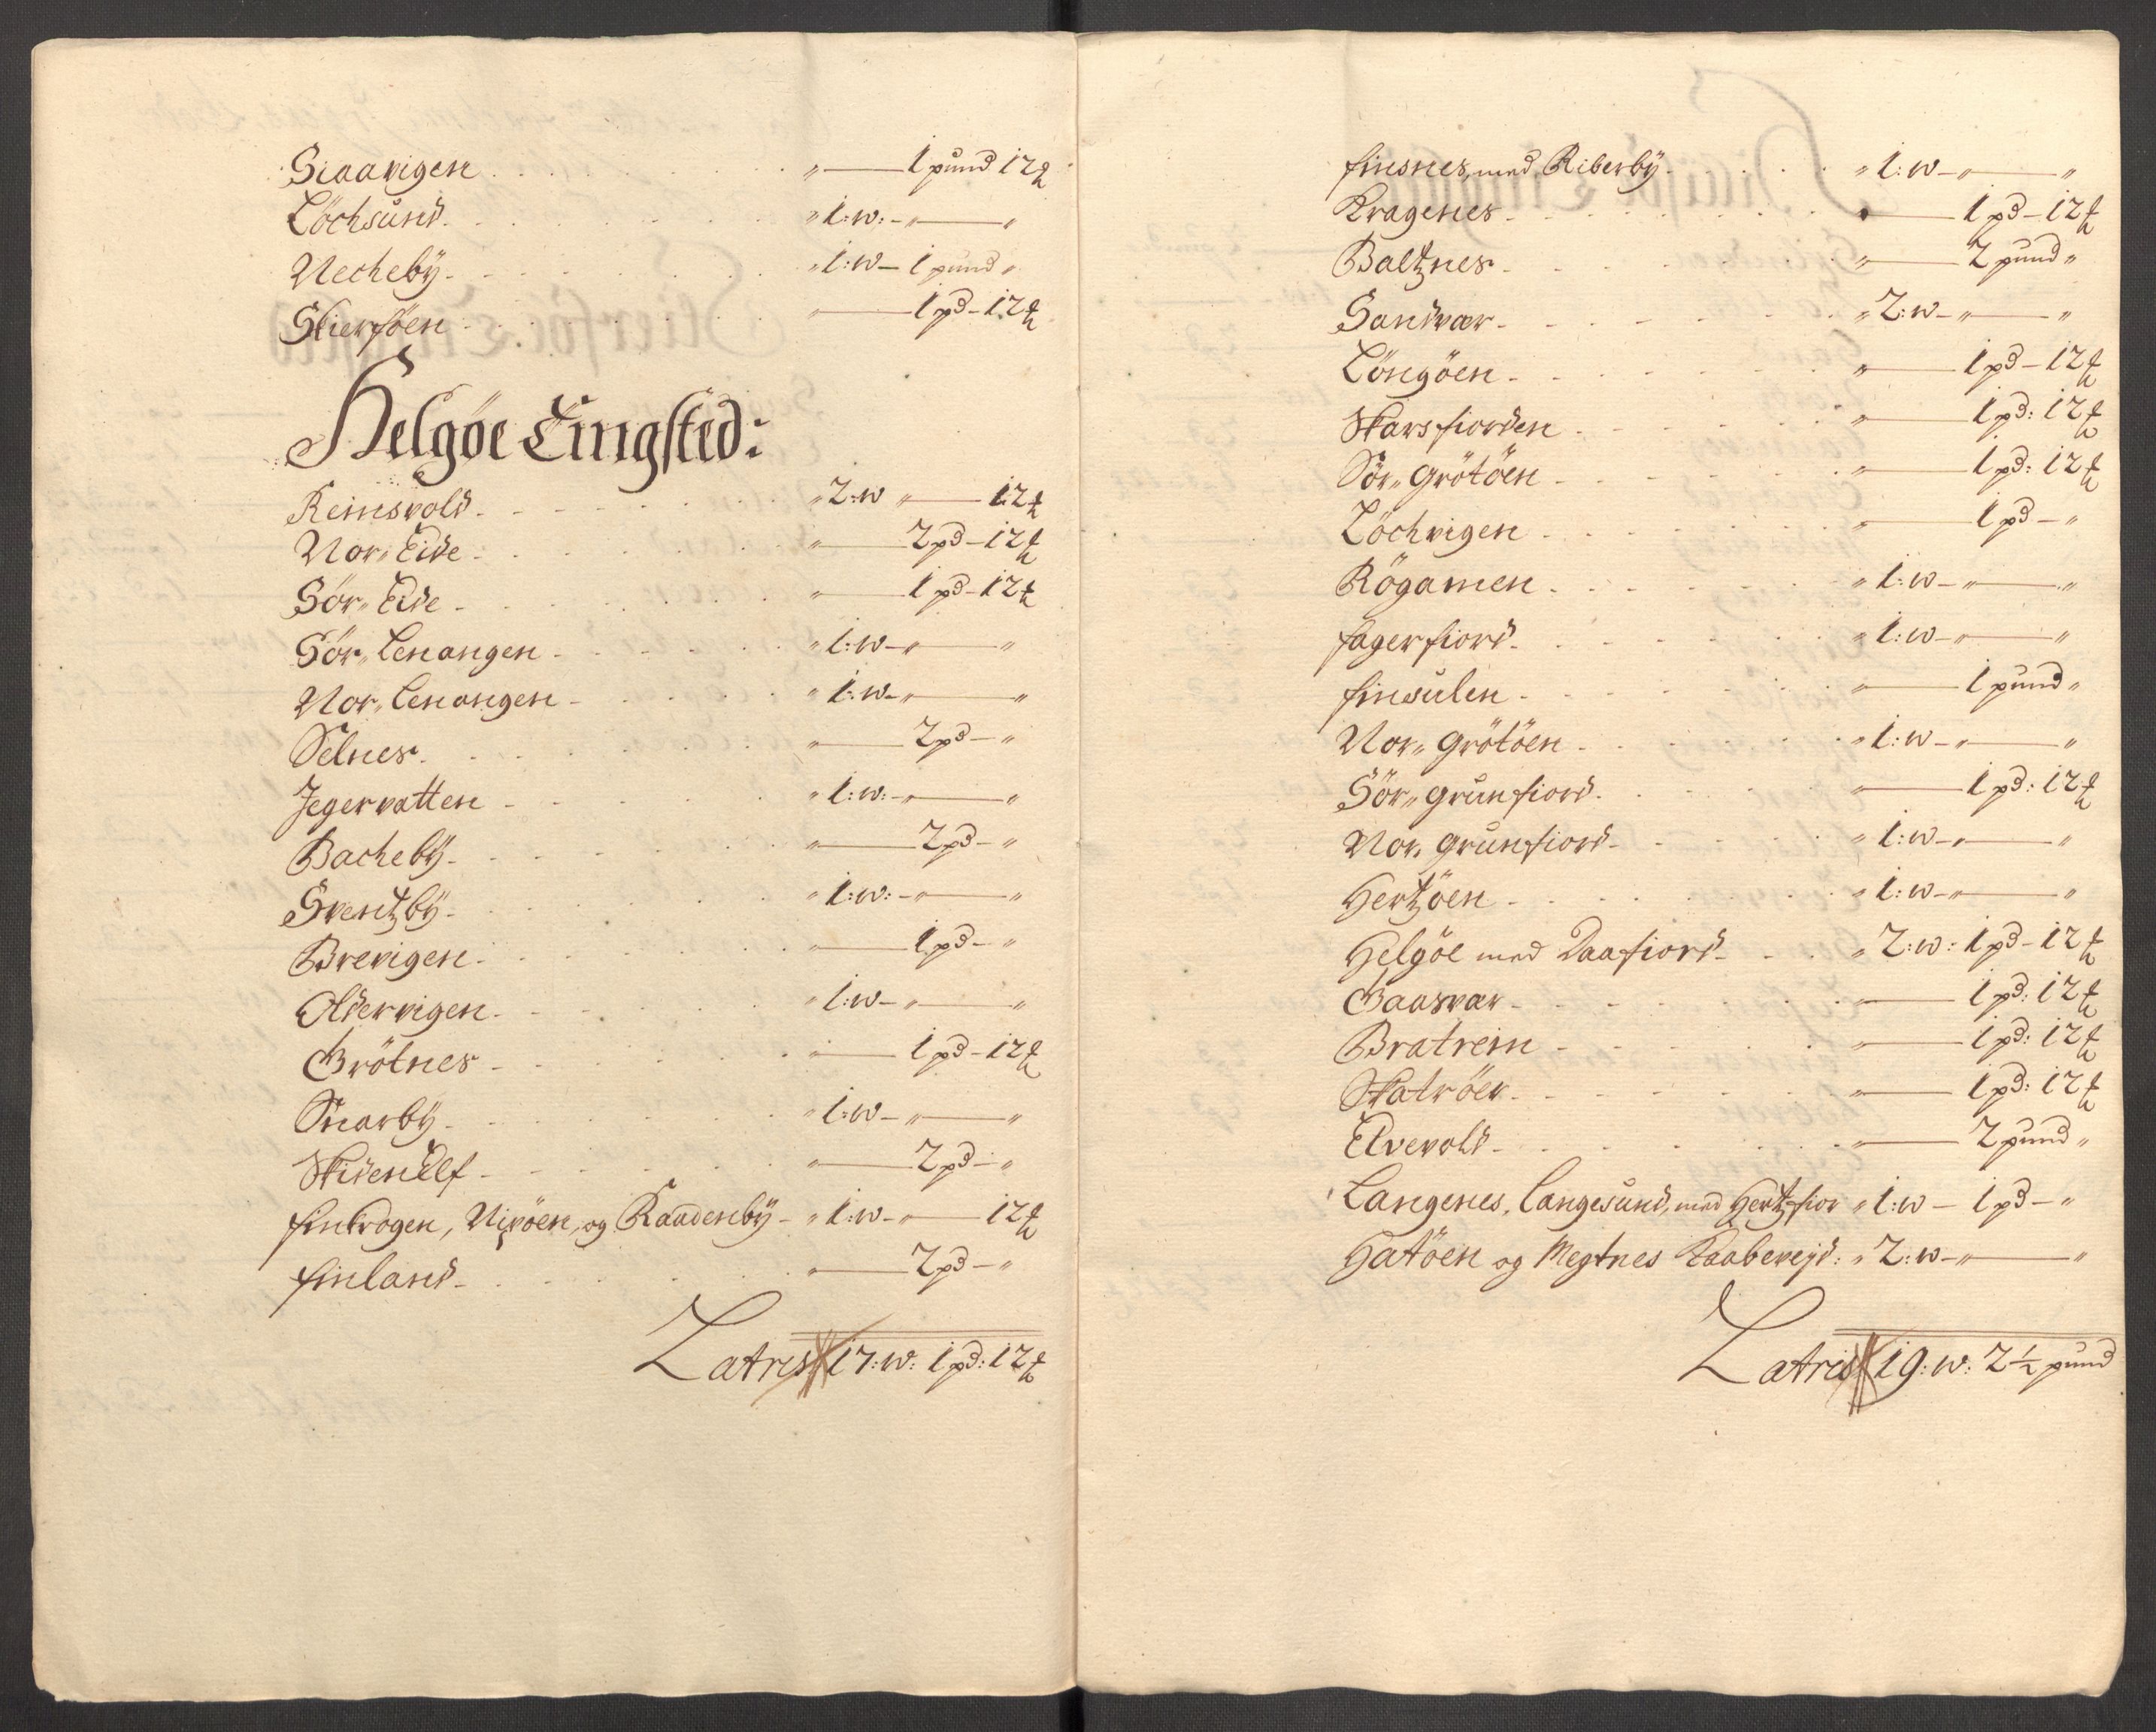 Siaavigen . . . . . . . „ — 1 pund 12 ℔
Löchsund . . . . . . . „ 1:w:-„ — „
Uecheby . . . . . . . „ 1:w – 1 pund „
Skierföen . . . . . . . „ — 1 pd – 12 ℔
Helgöe Tingsted:
Reinsvold . . . . . . . „ 2:w „ — 12 ℔
Nor„ Eide . . . . . . . „ — 2 pd – 12 ℔
Sör„ Eide . . . . . . . „ — 1 pd – 12 ℔
Sör„ Lenangen . . . . . . „ 1:w – „ — „
Nor„ Lenangen . . . . . . „ 1:w – „ — „
Selnes . . . . . . . „ — 2 pd – „
Jegervatten . . . . . . . „ 1:w: – „ — „
Bacheby . . . . . . . „ — 2 pd – „
Sventzby . . . . . . . „ 1:w: – „ — „
Brevigen . . . . . . . „ — 1 pd – „
Oldervigen . . . . . . . „ 1:w – „ — „
Grötnes . . . . . . . „ — 1 pd – 12 ℔
Snarby . . . . . . . „ 1:w – „ — „
Skidenelf . . . . . . . „ — 2 pd – „
finkrogen, Nipöen, og Raadenby – „ 1:w – „ — 12 ℔
finland . . . . . . . „ — 2 pd – „
Latris 17:w: 1 pd: 12 ℔
finsnes, med Riberby . . . . . „ 1:w – „ — „
Kragenes . . . . . . . „ — 1 pd – 12 ℔
Baltznes . . . . . . . „ — 2 pund „
Sandvær . . . . . . . „ 2:w – „ — „
Löngöen . . . . . . . „ — 1 pd – 12 ℔
Skarsfiorden . . . . . . . „ — 1 pd: 12 ℔
Sör„ Grötöen . . . . . . . „ — 1 pd: 12 ℔
Löchvigen . . . . . . . „ — 1 pd – „
Rögamen . . . . . . . „ 1:w – „ — „
fagerfiord . . . . . . . „ 1:w – „ — „
finsulen . . . . . . . „ — 1 pund „
Nor„ Grötöen . . . . . . . „ 1:w – „ — „
Sör„ Grunfiord . . . . . . „ — 1 pd: 12 ℔
Nor„ Grunfiord . . . . . . „ 1:w – „ — „
Hertzöen . . . . . . . „ 1:w – „ — „
Helgöe med Daafiord . . . „ 2:w: 1 pd – 12 ℔
Gaasvær . . . . . . . „ — 1 pd: 12 ℔
Bratrein . . . . . . . „ — 1 pd: 12 ℔
Skatröer . . . . . . . „ — 1 pd: 12 ℔
Elvevold . . . . . . . „ — 2 pund „
Langenes, Langesund, med Hertzfior „ 1:w – 1 pd – „
Hatöen og Megtnes Kaabevejd: „ 2:w – „ — „
Latris 19:w: 2½ pund